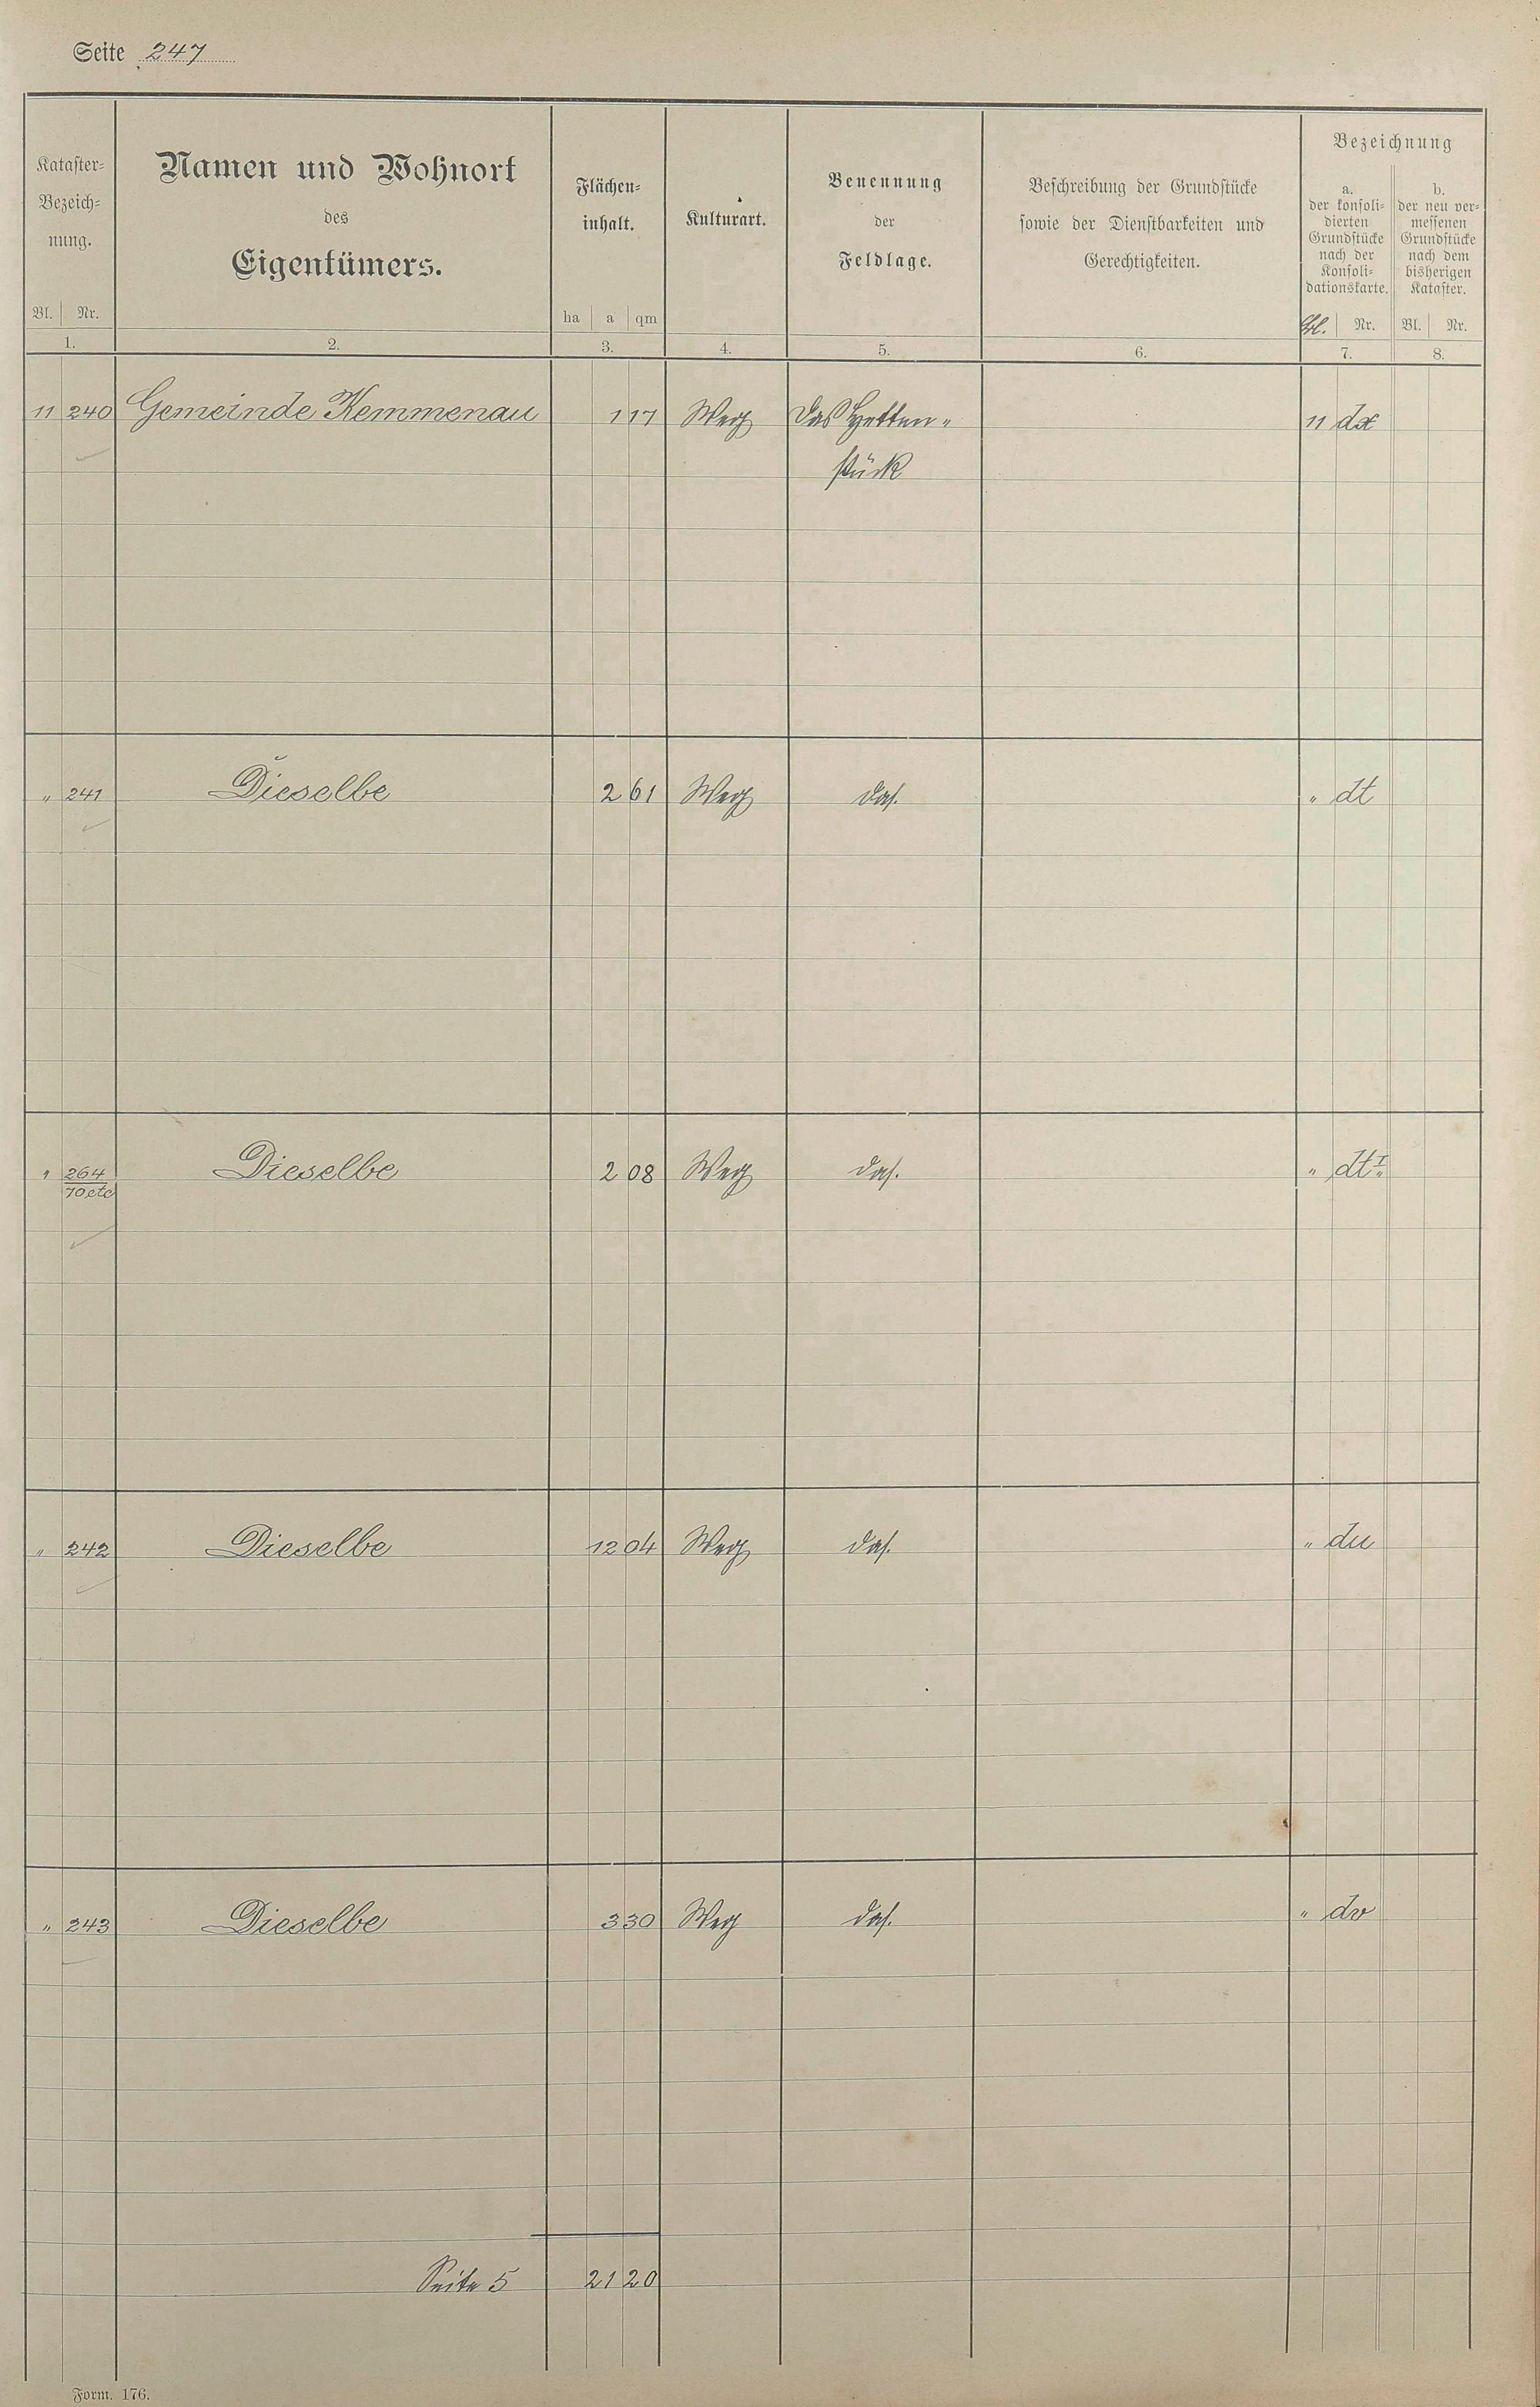 Seite 247
Kataster-
Bezeich-
nung.
Bl. Nr.
1.
Namen und Wohnort
des
Eigentümers.
2.
Flächen-
inhalt.
ha a qm
3.
Kulturart.
4.
Benennung
der
Feldlage.
5.
Beschreibung der Grundstücke
sowie der Dienstbarkeiten und
Gerechtigkeiten.
6.
Bezeichnung
a.
der konsoli-
dierten
Grundstücke
nach der
Konsoli-
dationskarte.
Nr.
7.
b.
der neu ver-
messenen
Grundstücke
nach dem
bisherigen
Kataster.
Bl. Nr.
8.
11 240 Gemeinde Kemmenau 1 17 Weg Das Hetten-
stück
11 dx
" 241 Dieselbe 2 61 Weg das. " dt
" 264 Dieselbe 2 08 Weg das. " dt I
70 etc
" 242 Dieselbe 12 04 Weg das. " du
" 243 Dieselbe 3 30 Weg das. " dv
Seite 5 21 20
Form. 176.